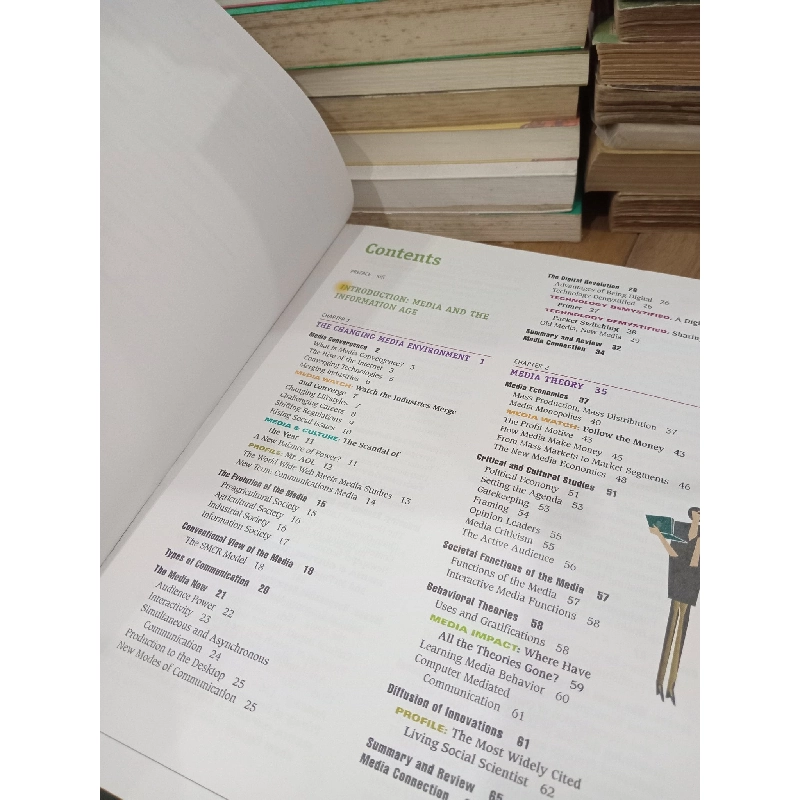 Contents
PREFACE xiii
INTRODUCTION: MEDIA AND THE
INFORMATION AGE
CHAPTER 1
THE CHANGING MEDIA ENVIRONMENT 1
Media Convergence 2
What Is Media Convergence? 3
The Rise of the Internet 5
Converging Technologies 6
Merging Industries 6
MEDIA WATCH: Watch the Industries Merge
and Converge 7
Changing Lifestyles 7
Challenging Careers 8
Shifting Regulations 9
Rising Social Issues 10
MEDIA & CULTURE: The Scandal of
the Year 11
A New Balance of Power? 11
PROFILE: Mr. AOL 12
The World Wide Web Meets Media Studies 13
New Term: Communications Media 14
The Evolution of the Media 15
Preagricultural Society 15
Agricultural Society 16
Industrial Society 16
Information Society 17
Conventional View of the Media 18
The SMCR Model 18
Types of Communication 20
The Media Now 21
Audience Power 22
Interactivity 23
Simultaneous and Asynchronous
Communication 24
Production to the Desktop 25
New Modes of Communication 25
The Digital Revolution 26
Advantages of Being Digital 26
Technology Demystified 26
TECHNOLOGY DEMYSTIFIED: A Digi
Primer 27
TECHNOLOGY DEMYSTIFIED: Sharin
Packet Switching 28
Old Media, New Media 29
Summary and Review 32
Media Connection 34
CHAPTER 2
MEDIA THEORY 35
Media Economics 37
Mass Production, Mass Distribution 37
Media Monopolies 40
MEDIA WATCH: Follow the Money 43
The Profit Motive 43
How Media Make Money 45
From Mass Markets to Market Segments 46
The New Media Economics 48
Critical and Cultural Studies 51
Political Economy 51
Setting the Agenda 53
Gatekeeping 53
Framing 54
Opinion Leaders 55
Media Criticism 55
The Active Audience 56
Societal Functions of the Media 57
Functions of the Media 57
Interactive Media Functions 58
Behavioral Theories 58
Uses and Gratifications 58
MEDIA IMPACT: Where Have
All the Theories Gone? 59
Learning Media Behavior 60
Computer Mediated
Communication 61
Diffusion of Innovations 61
PROFILE: The Most Widely Cited
Living Social Scientist 62
Summary and Review 65
Media Connection